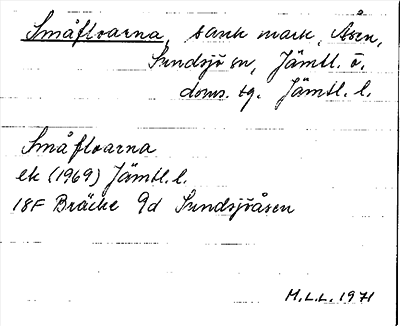 Småfloarna, sank mark, Åsen,
Sundsjö sn, Jämtl. ö.
doms. sg. Jämtl. l.
Småfloarna
ek (1969) Jämtl. l.
18F Bräcke 9d Sundsjöåsen
M.L.L. 1971